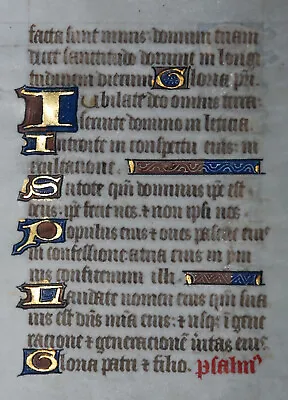 facta sunt nimis: domum tuam
decet sanctitudo domine in longi
tudinem dierum Gloria pri.
Iubilate deo omnis terra:
seruite domino in leticia
Introite in conspectu eius: in
exultatione.
Scitote qm̄ dominus ip̄e est
deus: ip̄e fecit nos: ⁊ non ipsi nos
Populus eius ⁊ oues pascue eius
in confessione atria eius in ym
nis confitemini illi
Laudate nomen eius qm̄ sua
uis est dn̄s mīa eius: ⁊ usq; ī gene
ratione ⁊ generacionē eius
Gloria patri ⁊ filio. psalm